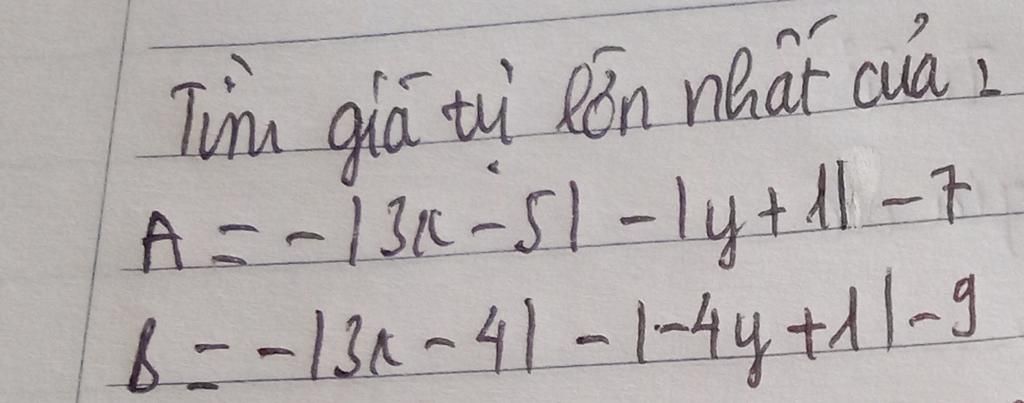 Tìm giá tị lớn nhất của :
A = -|3x - 5| - |y + 1| - 7
B = -|3x - 4| - |-4y + 1| - 9